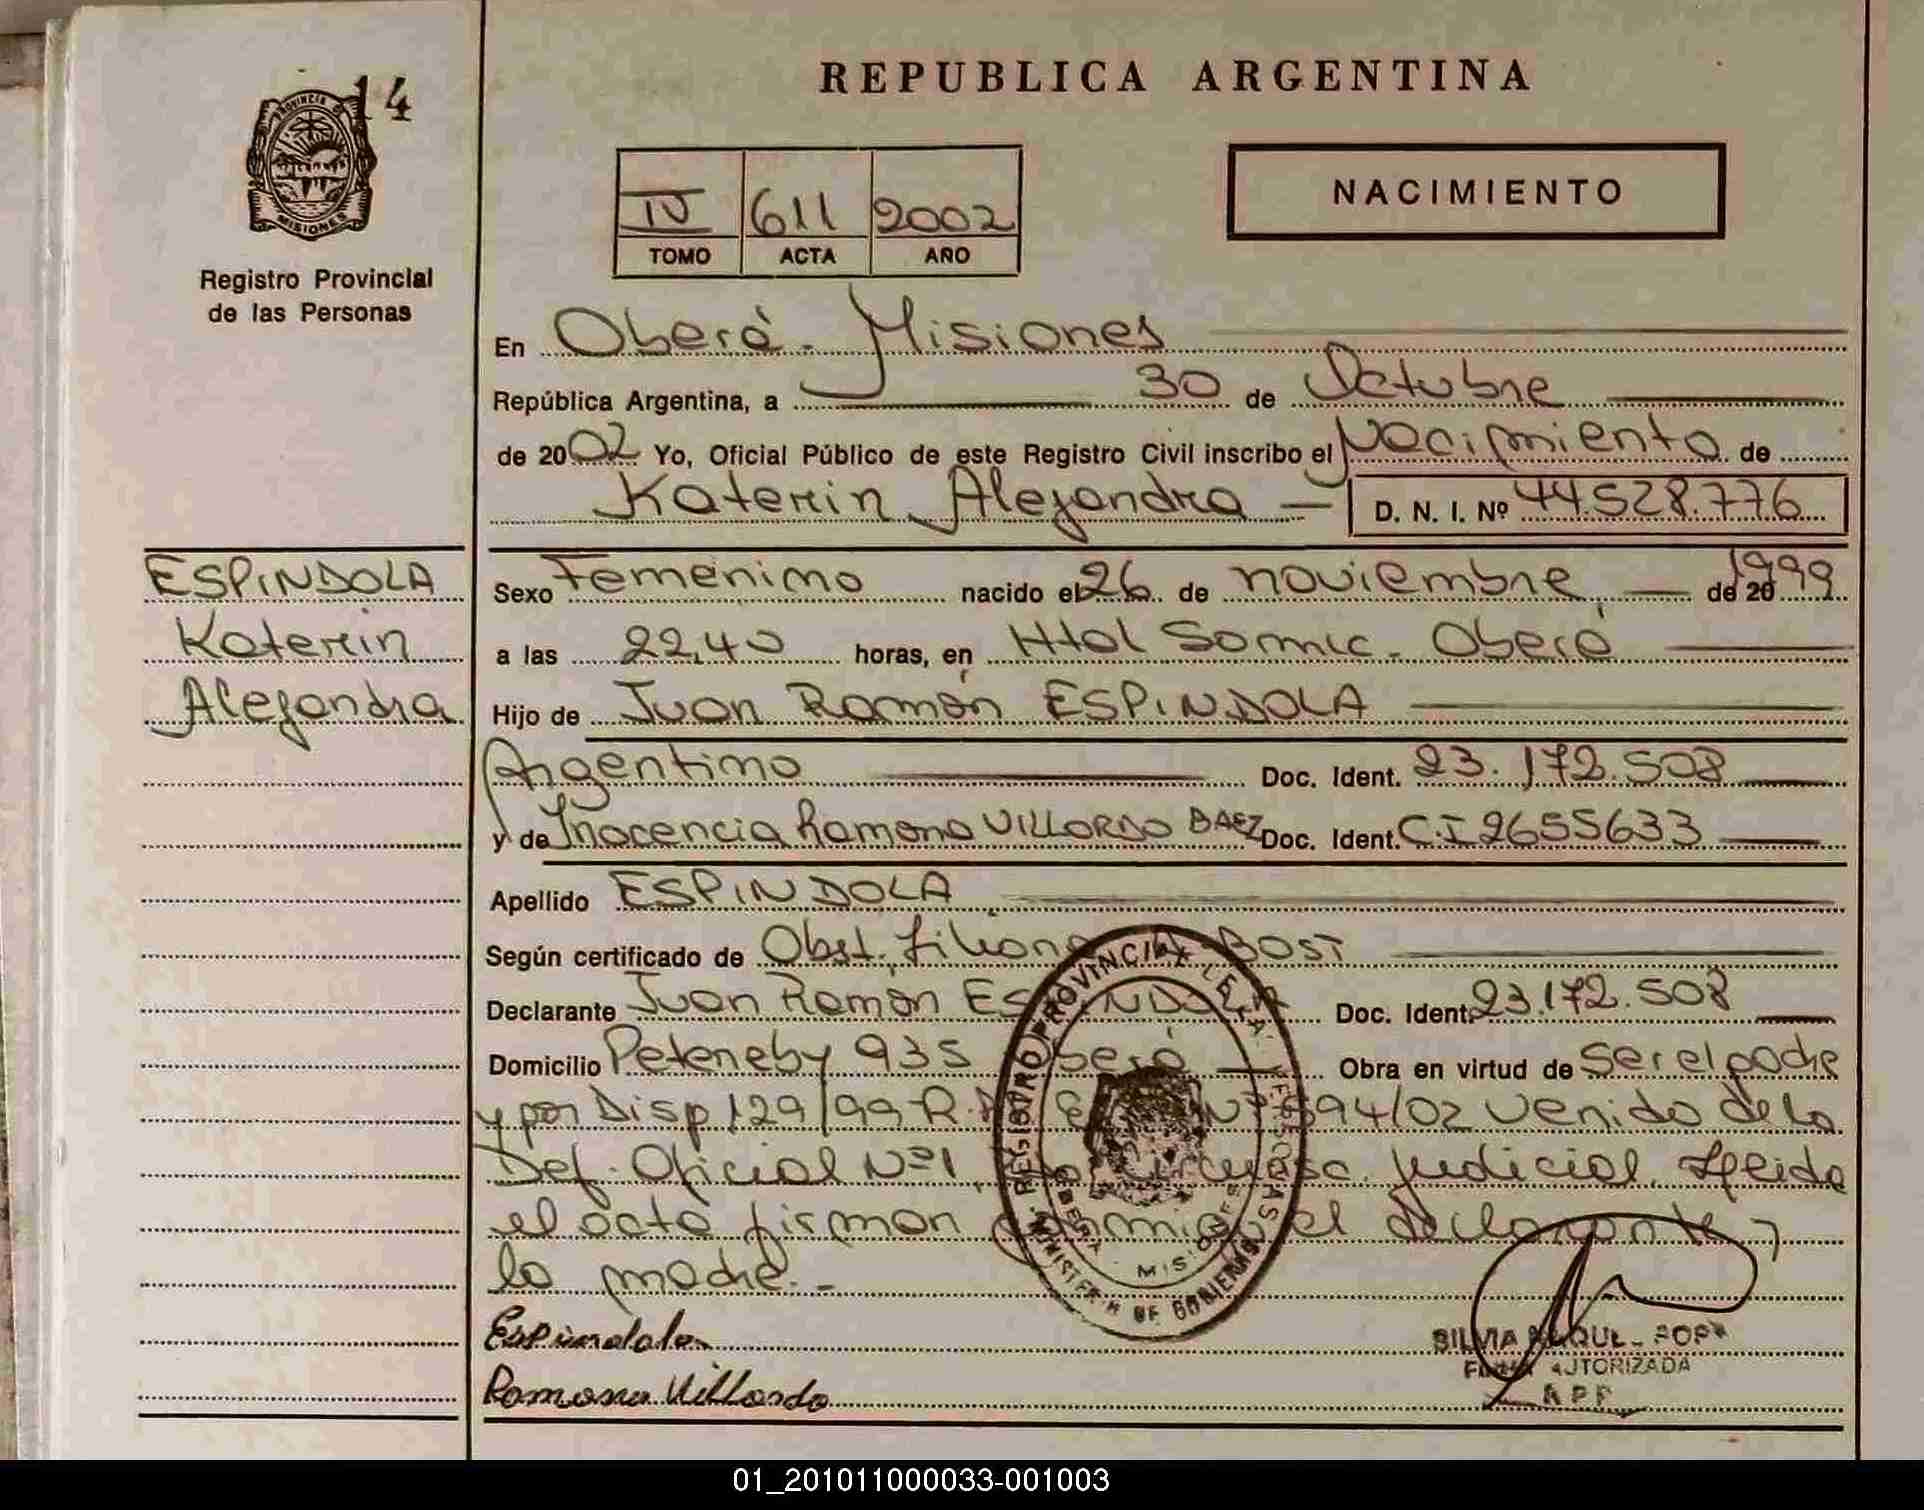 14
PROVINCIA DE
MISIONES
Registro Provincial
de las Personas
REPUBLICA ARGENTINA
IV 611 2002
TOMO ACTA AÑO
NACIMIENTO
En Oberá - Misiones
República Argentina, a 30 de Octubre
de 2002 Yo, Oficial Público de este Registro Civil inscribo el Nacimiento de
Katerin Alejandra — D. N. I. Nº 44.528.776
ESPINDOLA
Katerin
Alejandra
Sexo Femenino nacido el 26 de noviembre — de 1999
a las 22,40 horas, en Htal Samic - Oberá
Hijo de Juan Ramón ESPINDOLA
Argentino Doc. Ident. 23.172.508
y de Inocencia Ramona VILLORDO BAEZ Doc. Ident. C.I 2655633
Apellido ESPINDOLA
Según certificado de Obst. BOST
Declarante Juan Ramón ESPINDOLA Doc. Ident. 23.172.508
Domicilio 935 Oberá — Obra en virtud de ser el padre
y por Disp. 129/99 R. 94/02 venido de la
Def. Oficial Nº1, Judicial. Leida
el acta firman conmigo el declarante y
la madre. -
REGISTRO PROVINCIAL DE LAS PERSONAS
MINISTERIO DE GOBIERNO
MISIONES
Espindola
Ramona Villordo
SILVIA RAQUEL
FIRMA AUTORIZADA
01_201011000033-001003